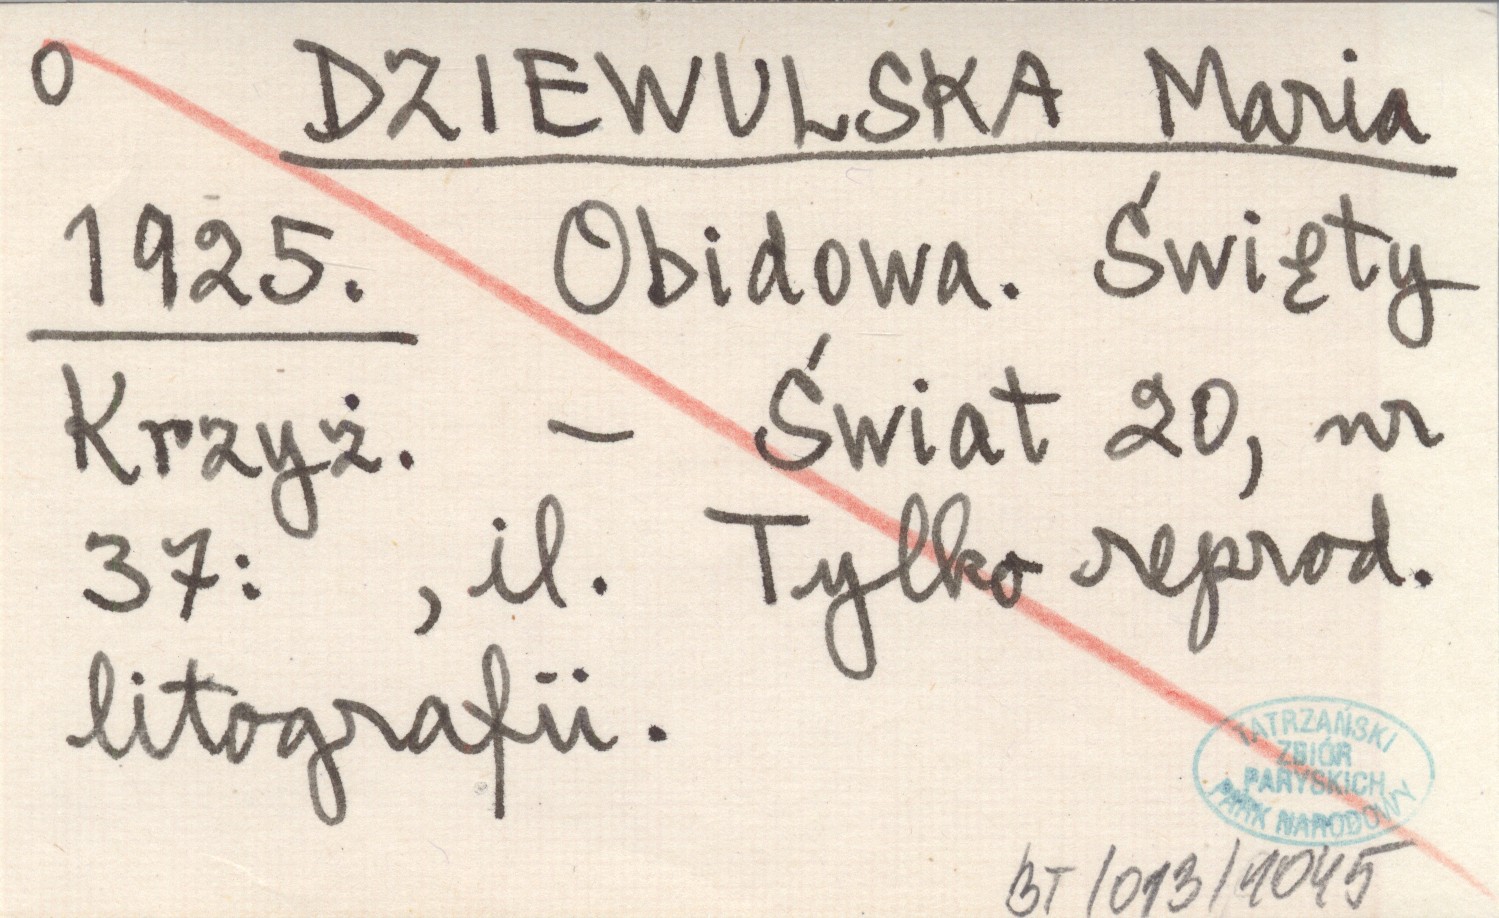 O DZIEWULSKA Maria
1925. Obidowa. Święty
Krzyż. – Świat 20, nr
37: , il. Tylko reprod.
litografii.
TATRZAŃSKI
ZBIÓR
PARYSKICH
PARK NARODOWY
BT/013/1045